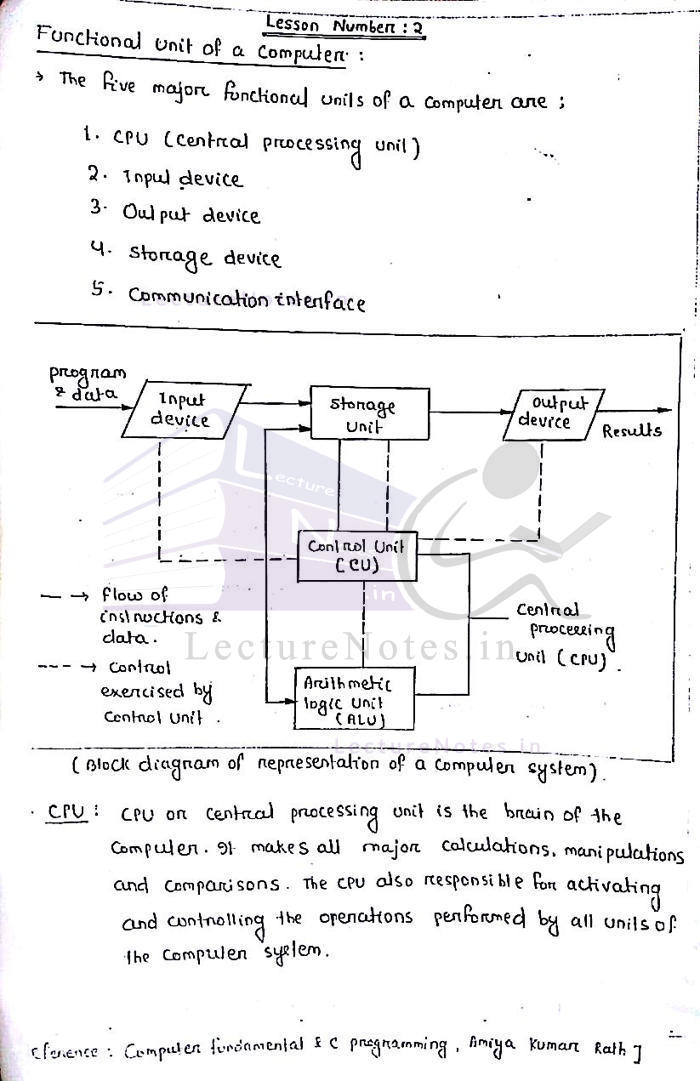 Lesson Number : 2
Functional unit of a computer :
→ The five major functional units of a computer are ;
1. CPU (Central processing unit)
2. Input device
3. Output device
4. Storage device
5. Communication interface
program
& data
Input
device
Storage
Unit
Output
device
Results
Control Unit
(CU)
Central
processing
Unit (CPU).
Arithmetic
logic Unit
(ALU)
— → Flow of
instructions &
data.
--- → Control
exercised by
Control Unit.
Lecture
N
.in
LectureNotes.in
LectureNotes.in
(Block diagram of representation of a computer system).
· CPU : CPU or Central processing unit is the brain of the
Computer. It makes all major calculations, manipulations
and comparisons. The CPU also responsible for activating
and controlling the operations performed by all units of
the computer system.
eference : Computer fundamental & C programming, Amiya Kumar Rath ]